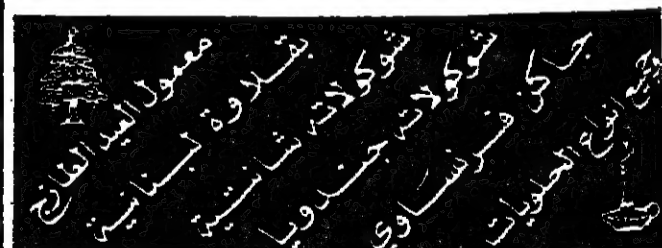 معمول العيد الطازج
بقلاوة لبنانية
شوكولاته شانتية
شوكولاته جندويا
فرنساوي
وجميع انواع الحلويات